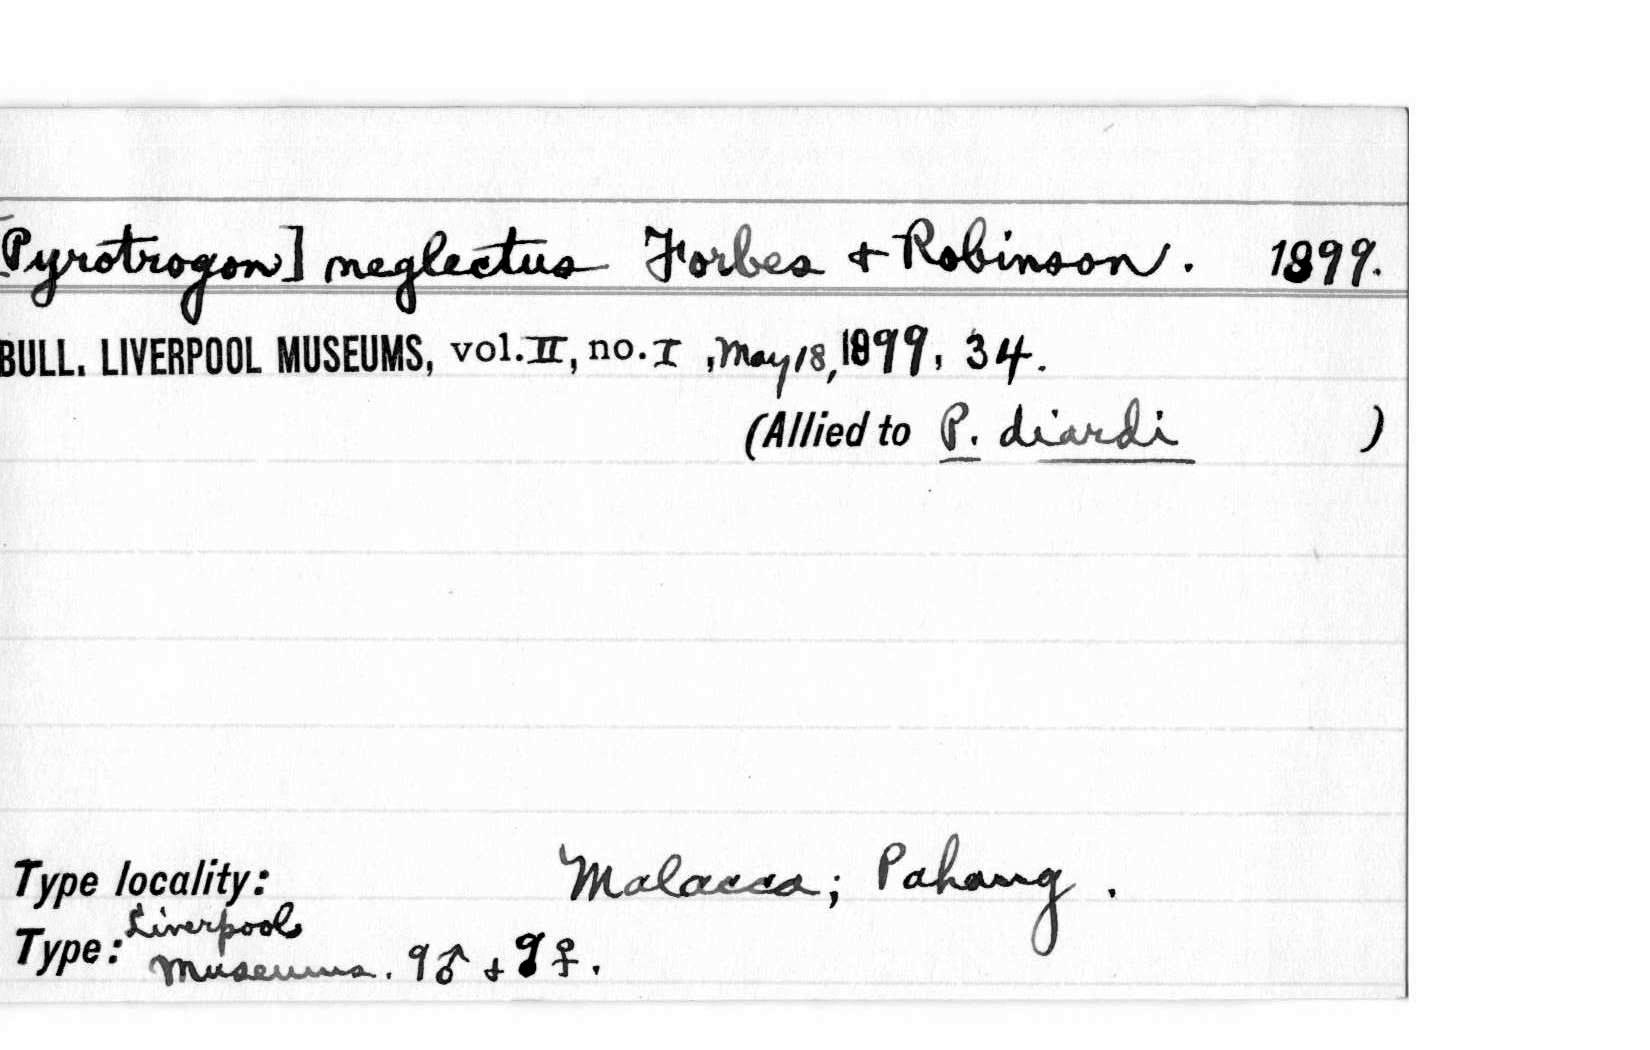 [Pyrotrogon] neglectus Forbes & Robinson. 1899.
BULL. LIVERPOOL MUSEUMS, vol. II, no. I, May 18, 1899, 34.
(Allied to P. diardi )
Type locality: Malacca; Pahang.
Type: Liverpool
Museums. 9♂ & 9♀.